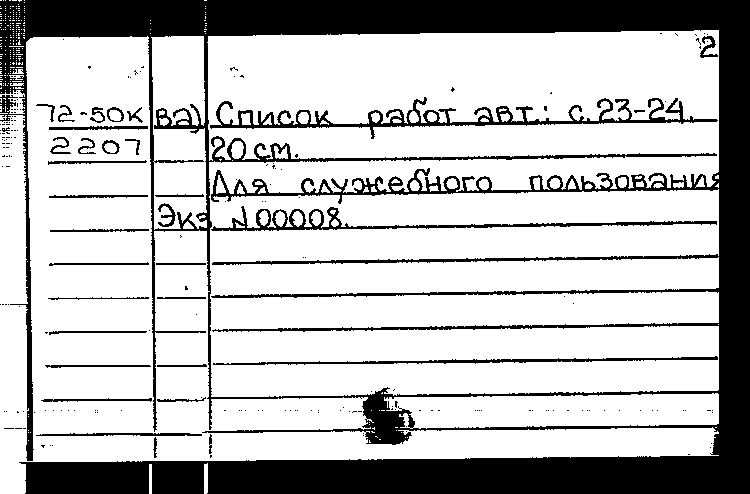 2
72-50к ва) Список работ авт.: с. 23-24.
2207 20 см.
Для служебного пользования
Экз. N00008.